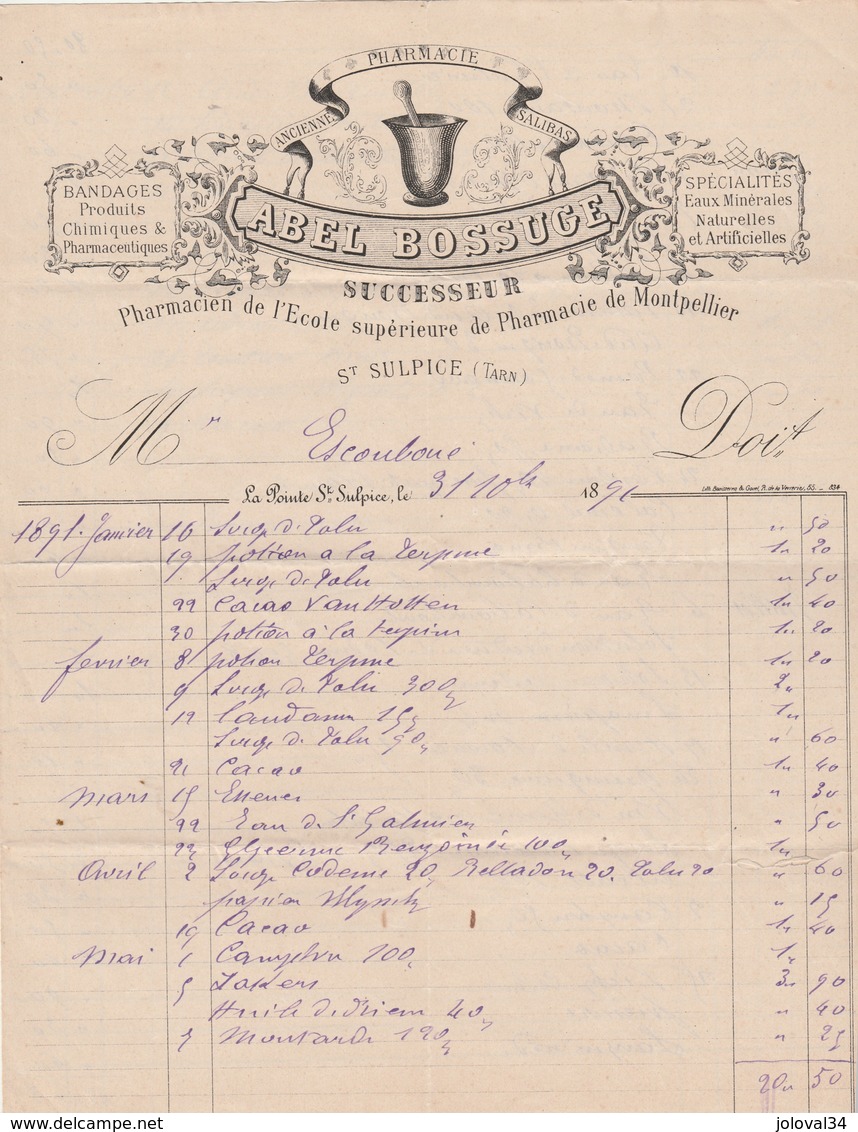 PHARMACIE
ANCIENNE SALIBAS
BANDAGES
Produits
Chimiques &
Pharmaceutiques
SPÉCIALITÉS
Eaux Minérales
Naturelles
et Artificielles
ABEL BOSSUGE
SUCCESSEUR
Pharmacien de l'Ecole supérieure de Pharmacie de Montpellier
ST SULPICE (TARN)
Mr Escouboué Doit
La Pointe St Sulpice, le 31 10bre 1891
1891. Janvier 16 Sirop de Tolu " 50
19 potion a la Terpine 1" 20
Sirop de Tolu " 50
22 Cacao Van Hotten 1" 40
30 potion à la terpine 1" 20
fevrier 8 potion Terpine 1" 20
9 Sirop de Tolu 300 2"
12 Laudanum 15 1"
Sirop de Tolu 90 " 60
21 Cacao 1" 40
Mars 15 " 30
22 Eau de St Galmier " 50
23 Glycerine 100 1"
Avril 2 Sirop Codeine 20, Belladon 20. Tolu 20 " 60
papier " 15
19 Cacao 1" 40
Mai 1 100 1"
5 3" 90
Huile de Ricin 40 " 40
5 Moutarde 120 " 25
20" 50
joloval34